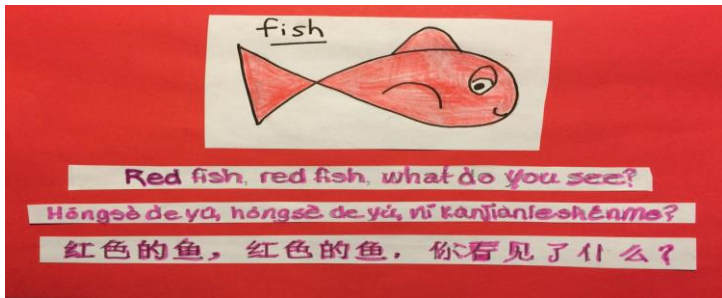 fish
Red fish, red fish, what do you see?
Hóngsè de yú, hóngsè de yú, nǐ kànjiànle shénme?
红色的鱼，红色的鱼．你看见了什么？